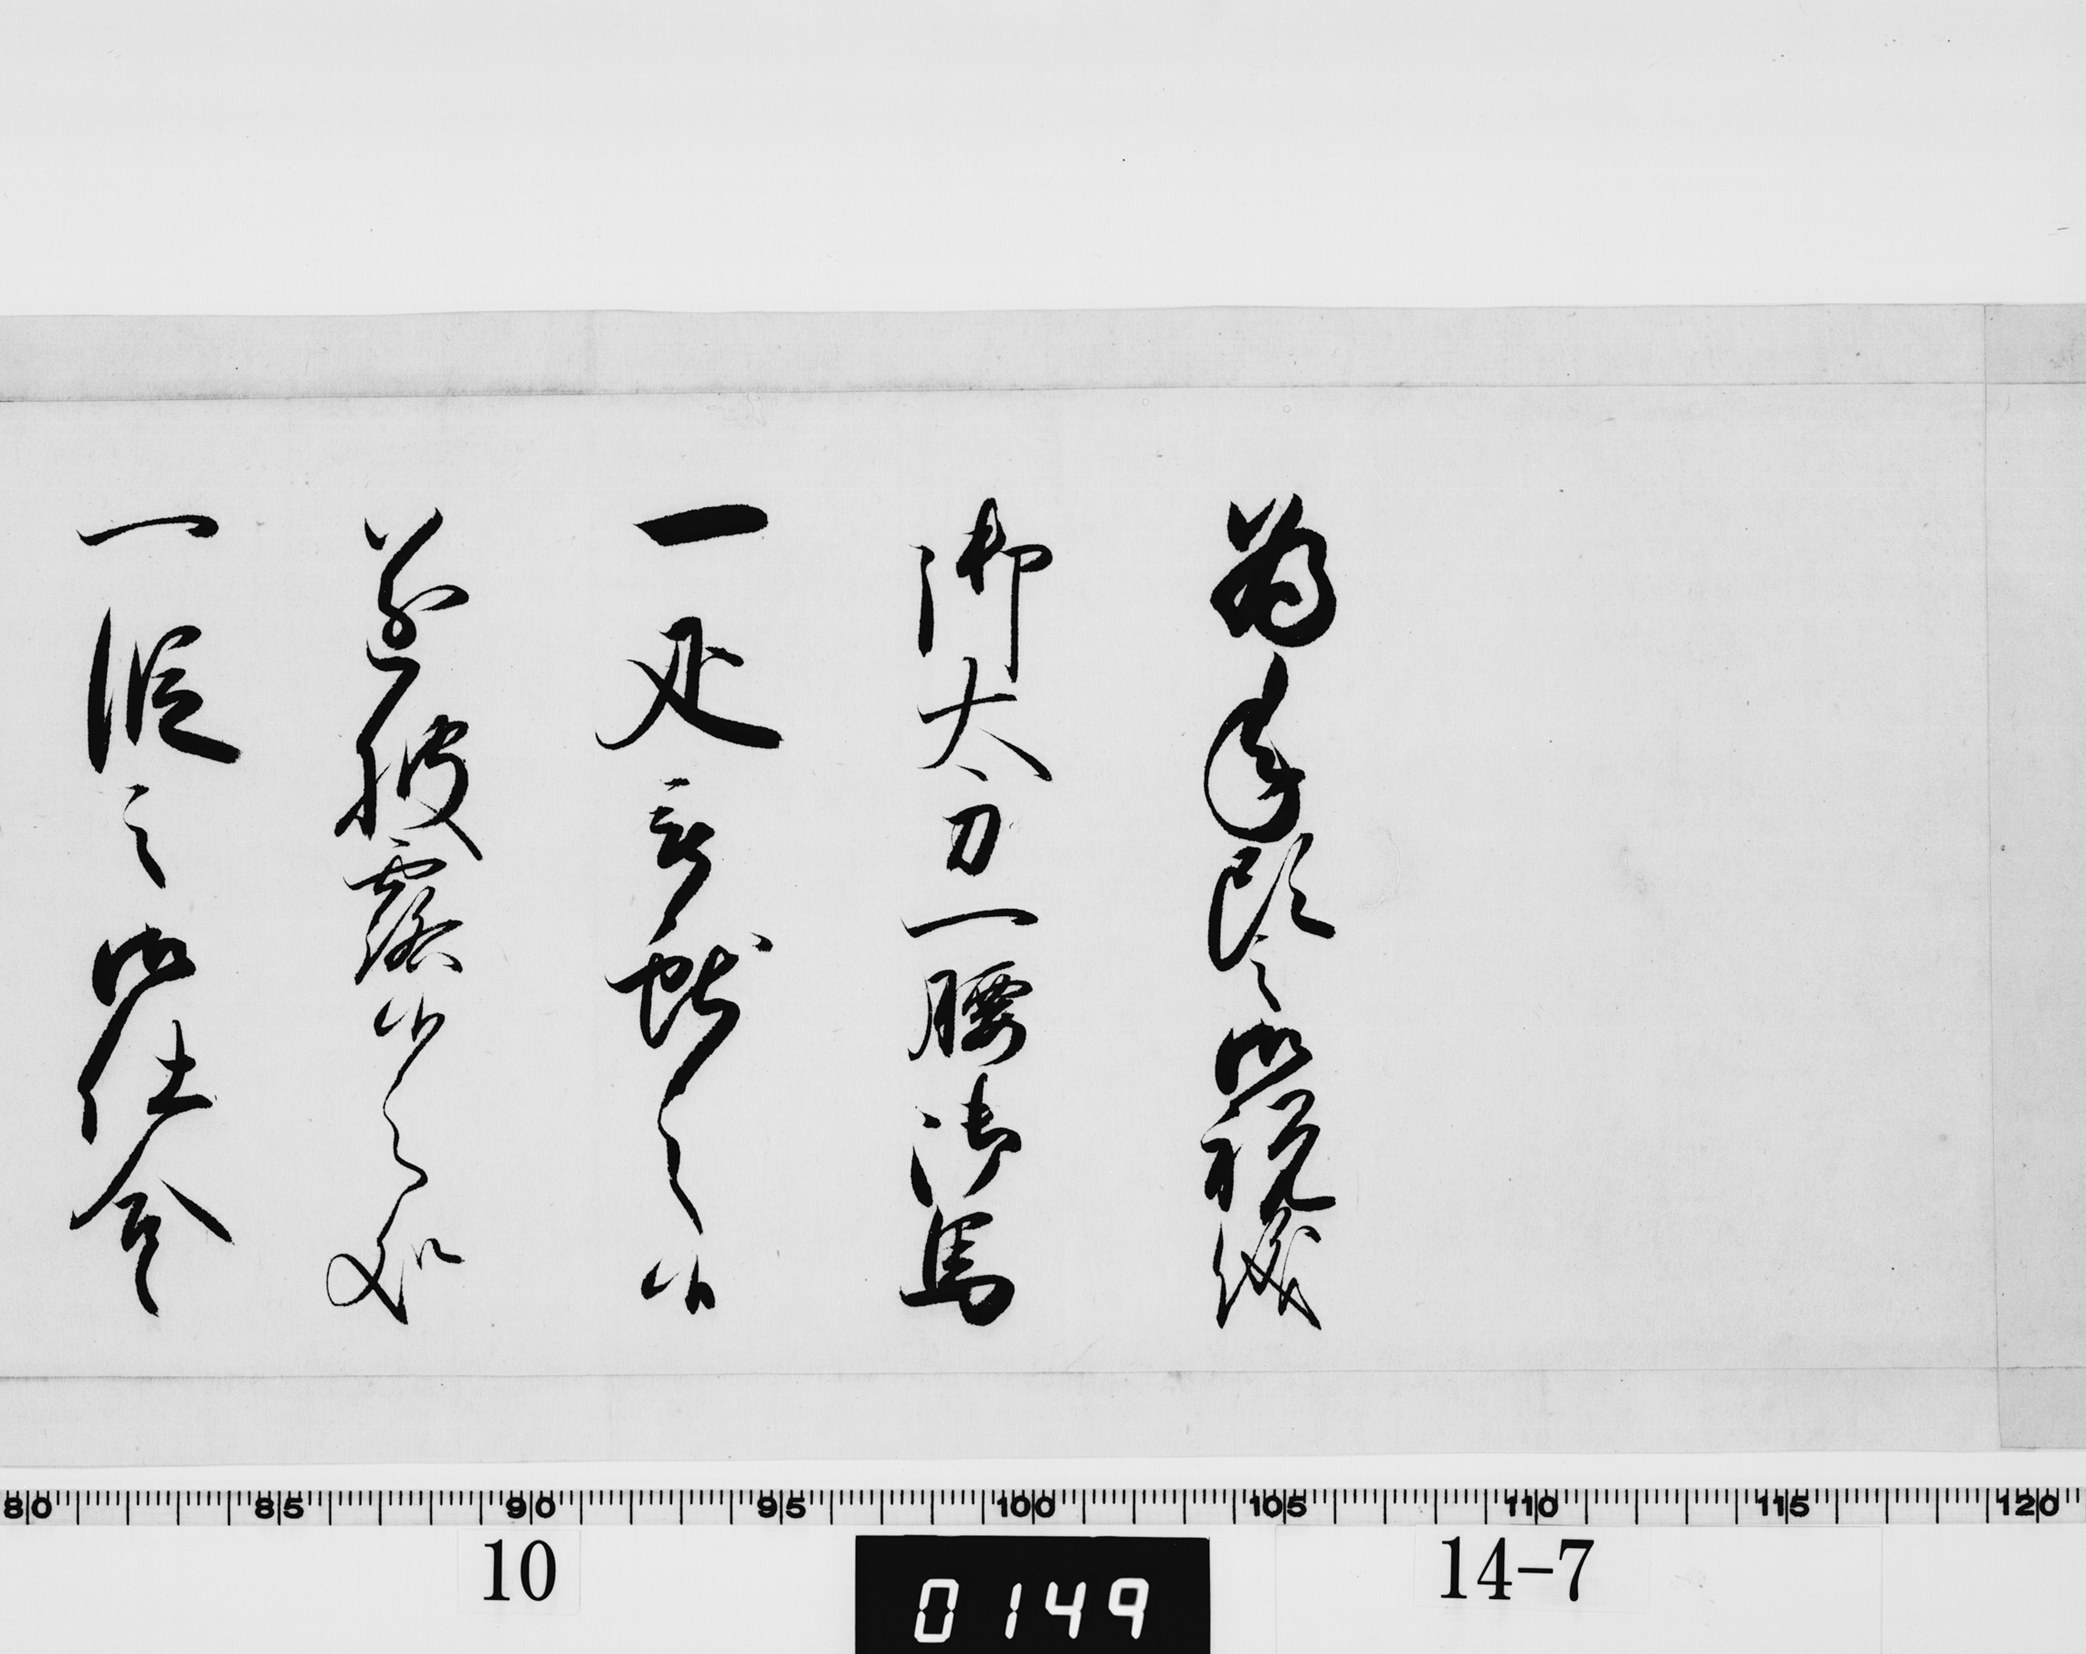 為年頭之御祝儀
御太刀一腰御馬
一疋言献之候
遂披露候之処
一段之御仕合
80 85 90 95 100 105 110 115 120
10
0149
14-7